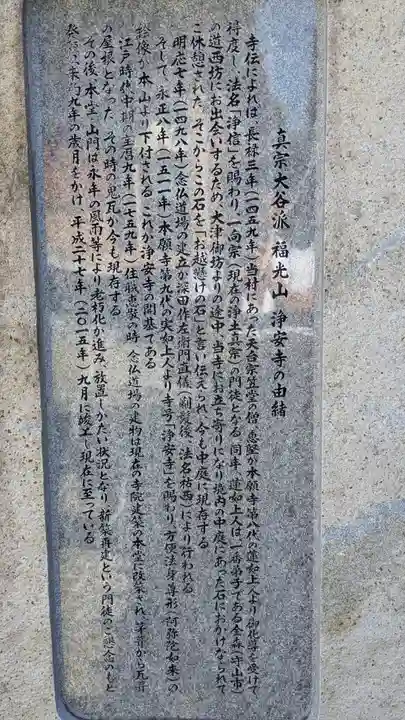 真宗大谷派 福光山 浄安寺の由緒
寺伝によれば、長禄三年（一四五九年）当村にあった天台宗笠堂の僧、恵堅が本願寺第八代の蓮如上人より御化導を受けて
得度し、法名「浄信」を賜わり、一向宗（現在の浄土真宗）の門徒となる。同年、蓮如上人は、一番弟子である金森（守山市）
の道西坊にお出会いするため、大津御坊よりの途中、当寺にお立ち寄りになり境内の中庭にあった石におかけなられて
ご休憩された。そこからこの石を「お越懸けの石」と言い伝えられ、今も中庭に現存する。
明応七年（一四九八年）念仏道場の建立が深田作左衛門直儀（剃髪後、法名祐西）により行われる。
そして、永正八年（一五一一年）本願寺第九代の実如上人より寺号「浄安寺」を賜わり、方便法身尊形（阿弥陀如来）の
絵像が本山より下付される。これが浄安寺の開基である。
江戸時代中期の宝暦九年（一七五九年）住職恵厳の時、念仏道場の建物は現在の寺院建築の本堂に改築され、茅葺から瓦葺
の屋根となった。その時の鬼瓦が今も現存する。
その後、本堂、山門は永年の風雨等により老朽化が進み、放置しがたい状況となり、新築再建という門徒のご懇念のもと
約九年の歳月をかけ、平成二十七年（二〇一五年）九月に竣工し現在に至っている。